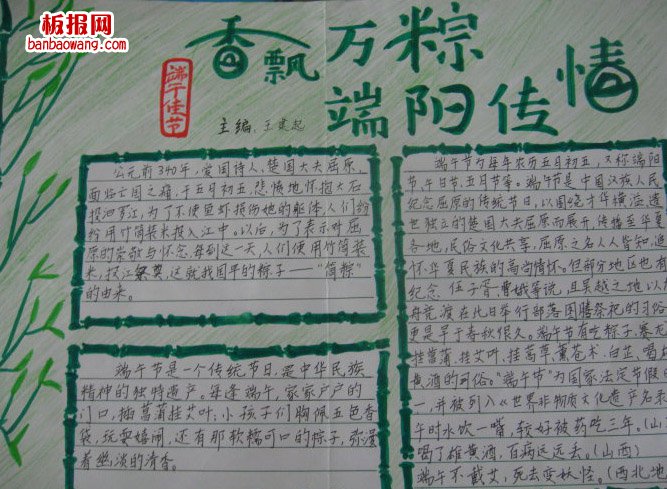 板报网
banbaowang.com
香飘万粽
端阳传情
端午佳节
主编:王建起
公元前340年,爱国诗人、楚国大夫屈原,
面临亡国之痛,于五月初五,悲愤地怀抱大石
投汩罗江,为了不使鱼虾损伤她的躯体,人们纷
纷用竹筒装米投入江中。以后,为了表示对屈
原的崇敬与怀念,每到这一天,人们便用竹筒装
米,投江祭奠,这就我国平的粽子——"筒粽"
的由来。
端午节是一个传统节日,是中华民族
精神的独特遗产。每逢端午,家家户户的
门口,插菖蒲挂艾叶;小孩子们胸佩五色香
袋,玩耍嬉闹,还有那软糯可口的粽子,弥漫
着幽淡的清香。
端午节为每年农历五月初五,又称端阳
节,午日节,五月节等。端午节是中国汉族人民
纪念屈原的传统节日,以围绕才华横溢,遗
世独立的楚国大夫屈原而展开,传播至华夏
各地,民俗文化共享,屈原之名人人皆知,追
怀华夏民族的高尚情怀。但部分地区也有
纪念伍子胥、曹娥等说,且吴越之地以龙
舟竞渡在此日举行部落图腾祭祀的习俗
更是早于春秋很久。端午节有吃粽子,赛龙
挂菖蒲,挂艾叶,挂高草,薰苍术、白芷,喝
黄酒的习俗。"端午节"为国家法定节假
一,并被列入《世界非物质文化遗产名录
午时水饮一嘴,较好被药吃三年。(山
喝了雄黄酒,百病远远丢。(山西)
端午不戴艾,死去变妖怪。(西北地